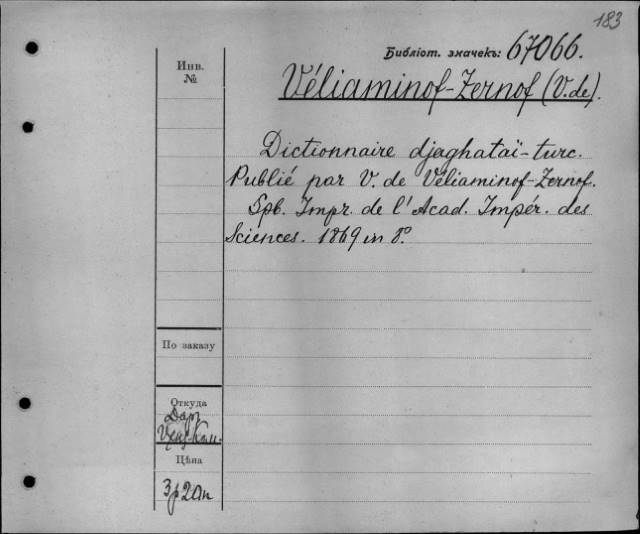 183
Библіот. значекъ: 67066.
Инв.
№
Véliaminof-Zernof (V. de).
Dictionnaire djaghataï-turc.
Publié par V. de Véliaminof-Zernof.
Spb. Impr. de l'Acad. Impér. des
Sciences. 1869 in 8º.
По заказу
Откуда
Дар
Цѣна
3р20к